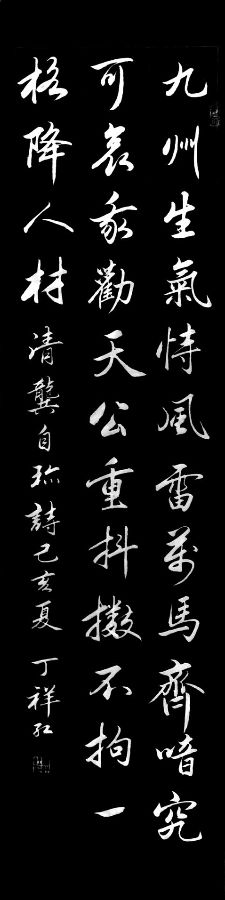 九州生氣恃風雷萬馬齊喑究
可哀我勸天公重抖擻不拘一
格降人材
清龔自珍詩己亥夏 丁祥紅